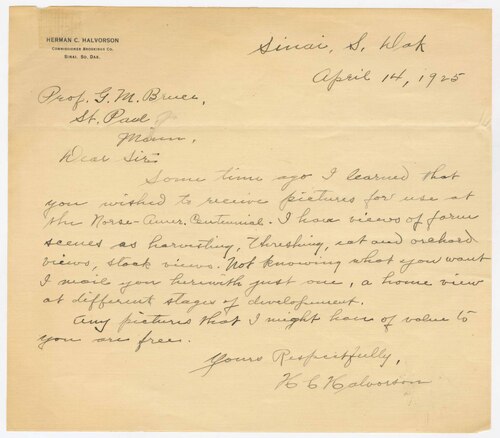 HERMAN C. HALVORSON
COMMISSIONER BROOKINGS CO.
SINAI, SO. DAK.
Sinai, S, Dak
April 14, 1925
Prof. G. M. Bruce,
St. Paul
Minn,
Dear Sir:
Some time ago I learned that
you wished to receive pictures for use at
the Norse-Amer. Centennial. I have views of farm
scenes as harvesting, threshing, and orchard
views, stock views. Not knowing what you want
I mail you herewith just one, a home view
at different stages of development.
Any pictures that I might have of value to
you are free.
Yours Respectfully,
H C Halvorson